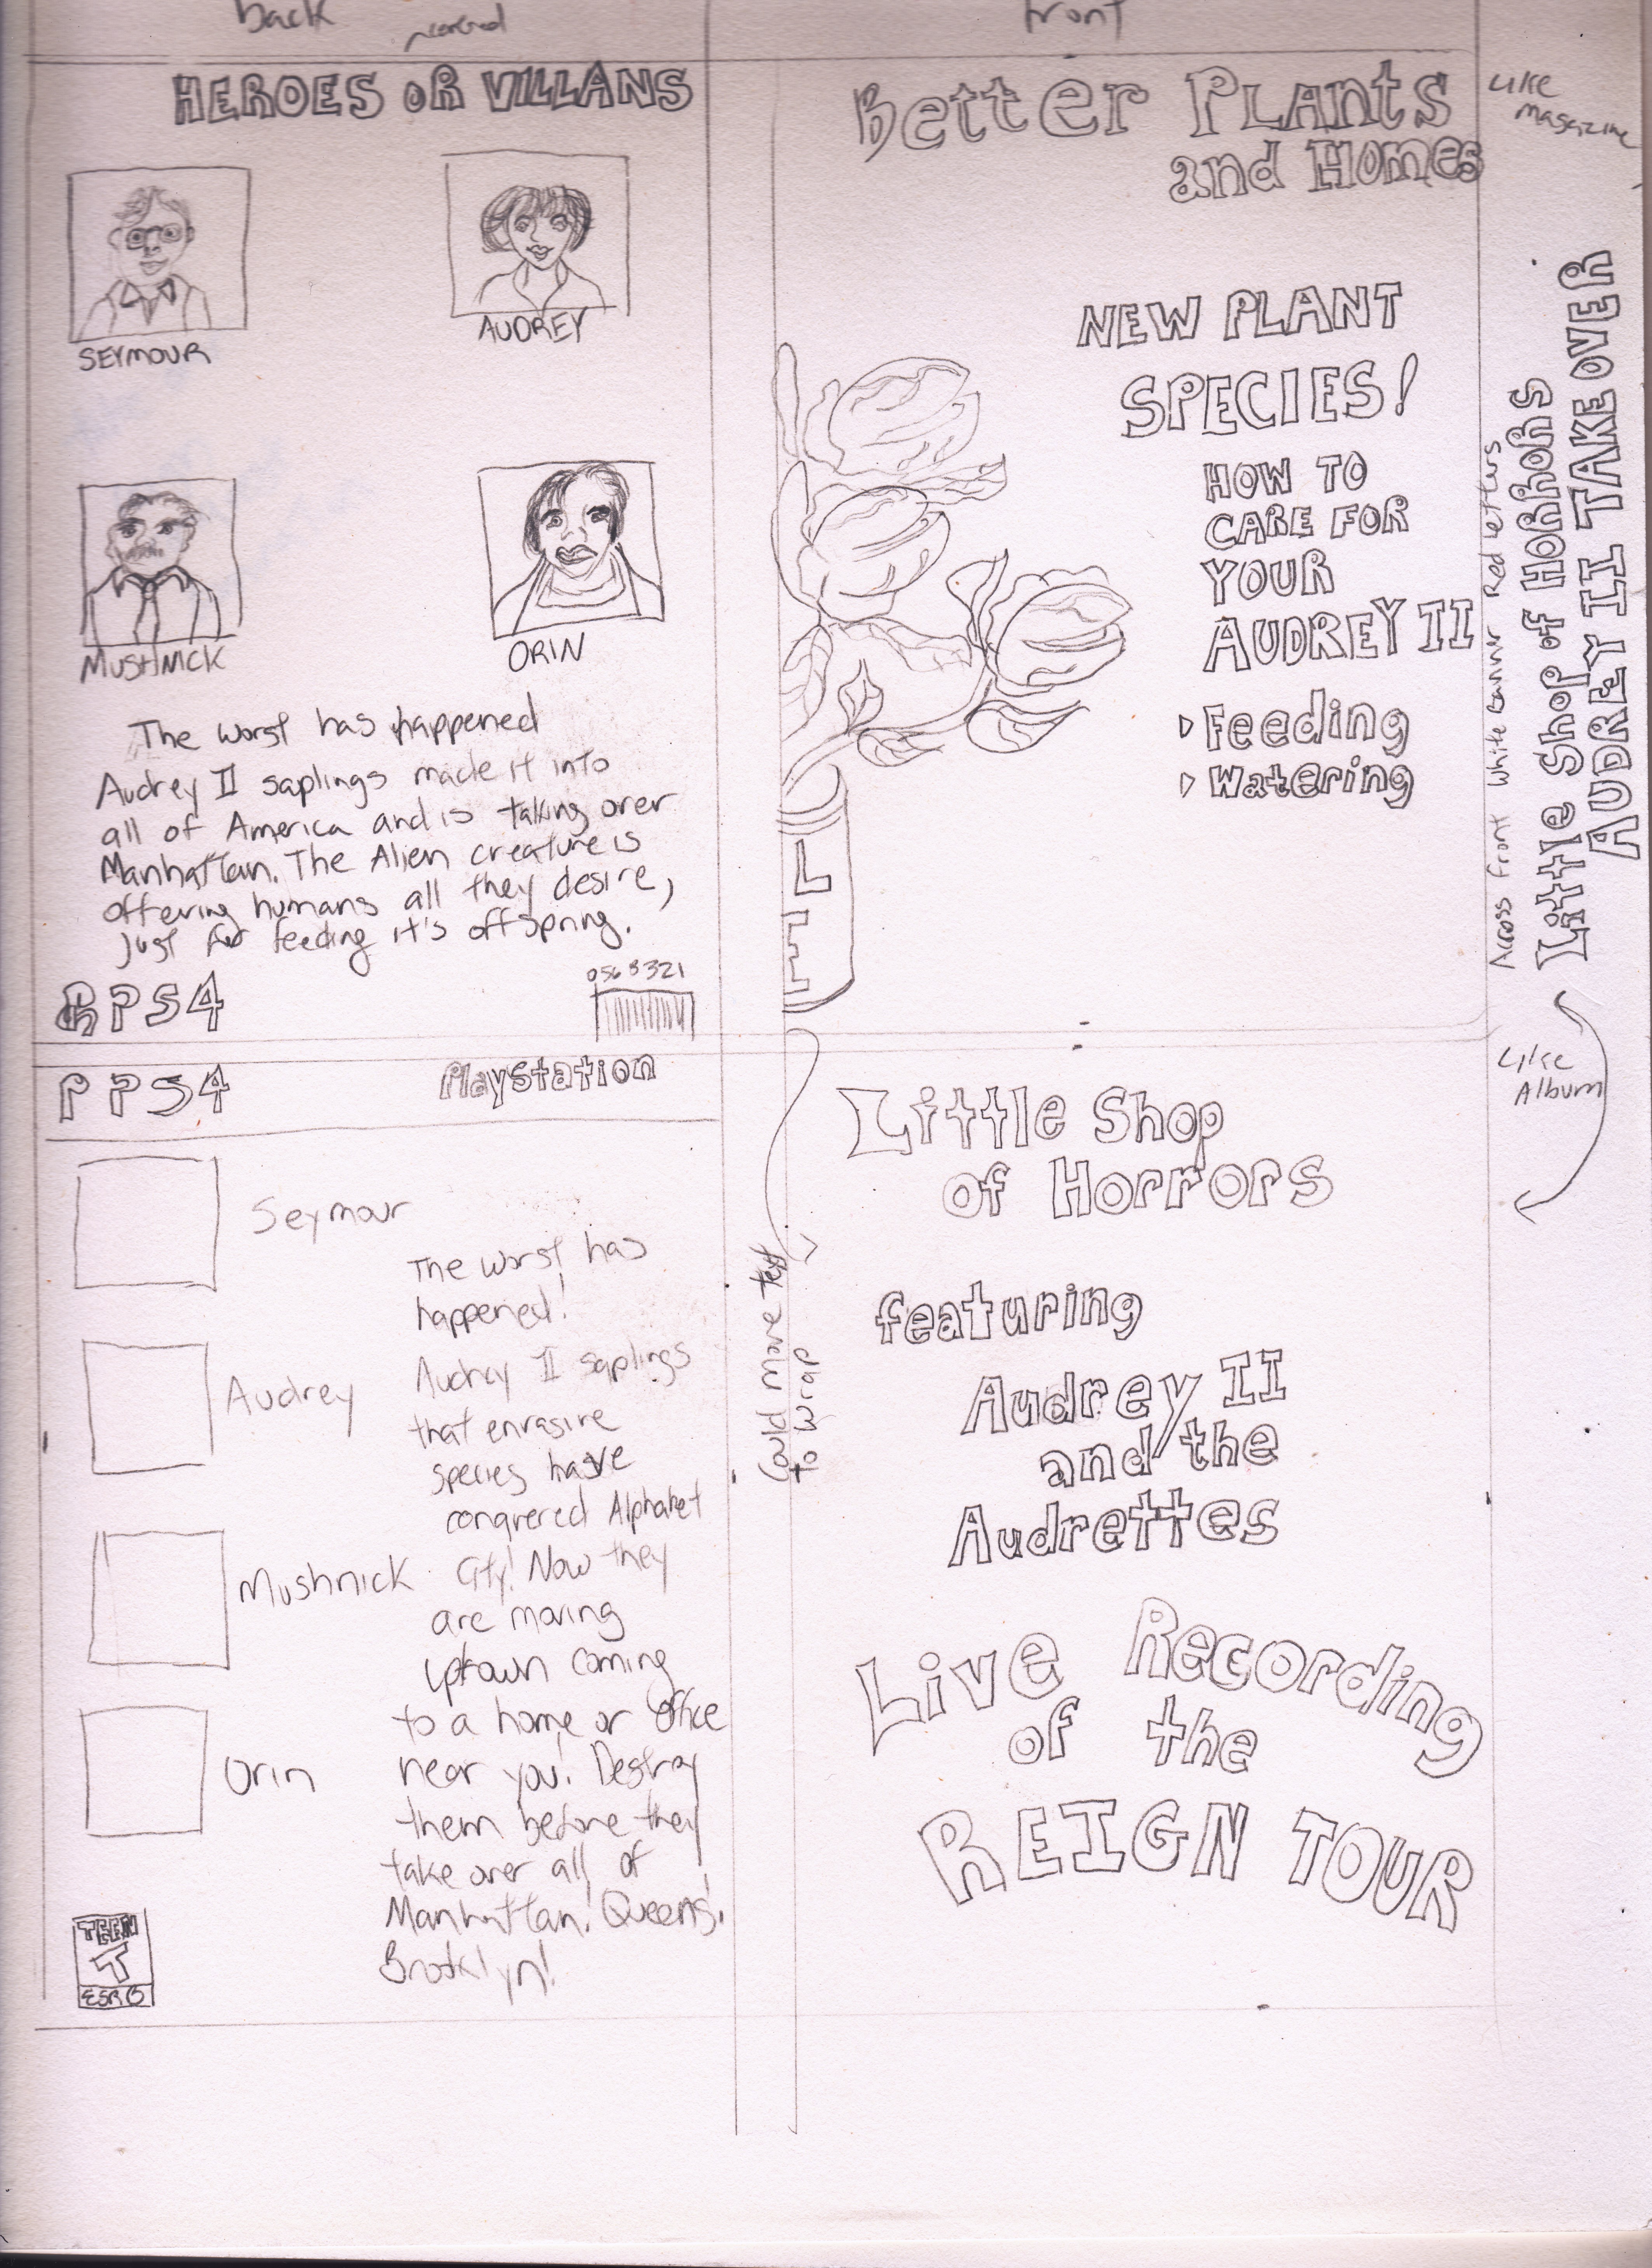 back
front
HEROES OR VILLANS
SEYMOUR
AUDREY
MUSHNICK
ORIN
The worst has happened
Audrey II saplings made it into
all of America and is taking over
Manhattan. The Alien creature is
offering humans all they desire,
just for feeding it's offspring.
PS4
0568321
Better Plants
and Homes
NEW PLANT
SPECIES!
HOW TO
CARE FOR
YOUR
AUDREY II
Feeding
Watering
Like
magazine
Across Front White banner Red letters
Little Shop of HORRORS
AUDREY II TAKE OVER
Like
Album
PS4
Playstation
Seymour
Audrey
Mushnick
Orin
The worst has
happened!
Audrey II saplings
that envasive
species have
conquered Alphabet
City! Now they
are moving
uptown coming
to a home or office
near you! Destroy
them before they
take over all of
Manhattan! Queens!
Brooklyn!
TEEN
T
ESRB
Could move text
to wrap
Little Shop
of Horrors
featuring
Audrey II
and the
Audrettes
Live Recording
of the
REIGN TOUR